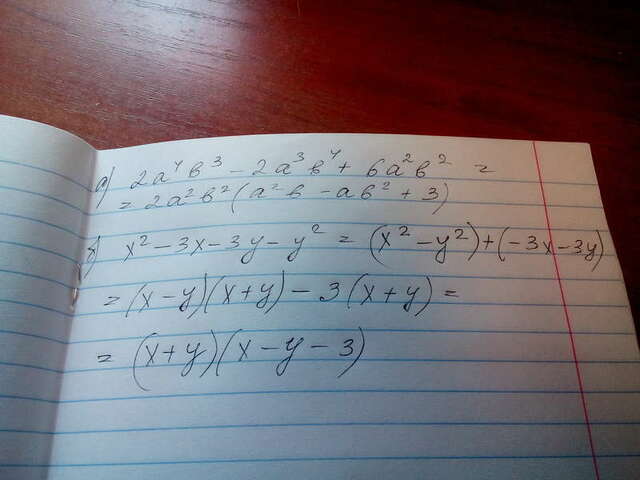 а) 2a⁴b³ - 2a³b⁴ + 6a²b² =
= 2a²b² (a²b - ab² + 3)
б) x² - 3x - 3y - y² = (x² - y²) + (-3x - 3y)
= (x - y)(x + y) - 3(x + y) =
= (x + y)(x - y - 3)